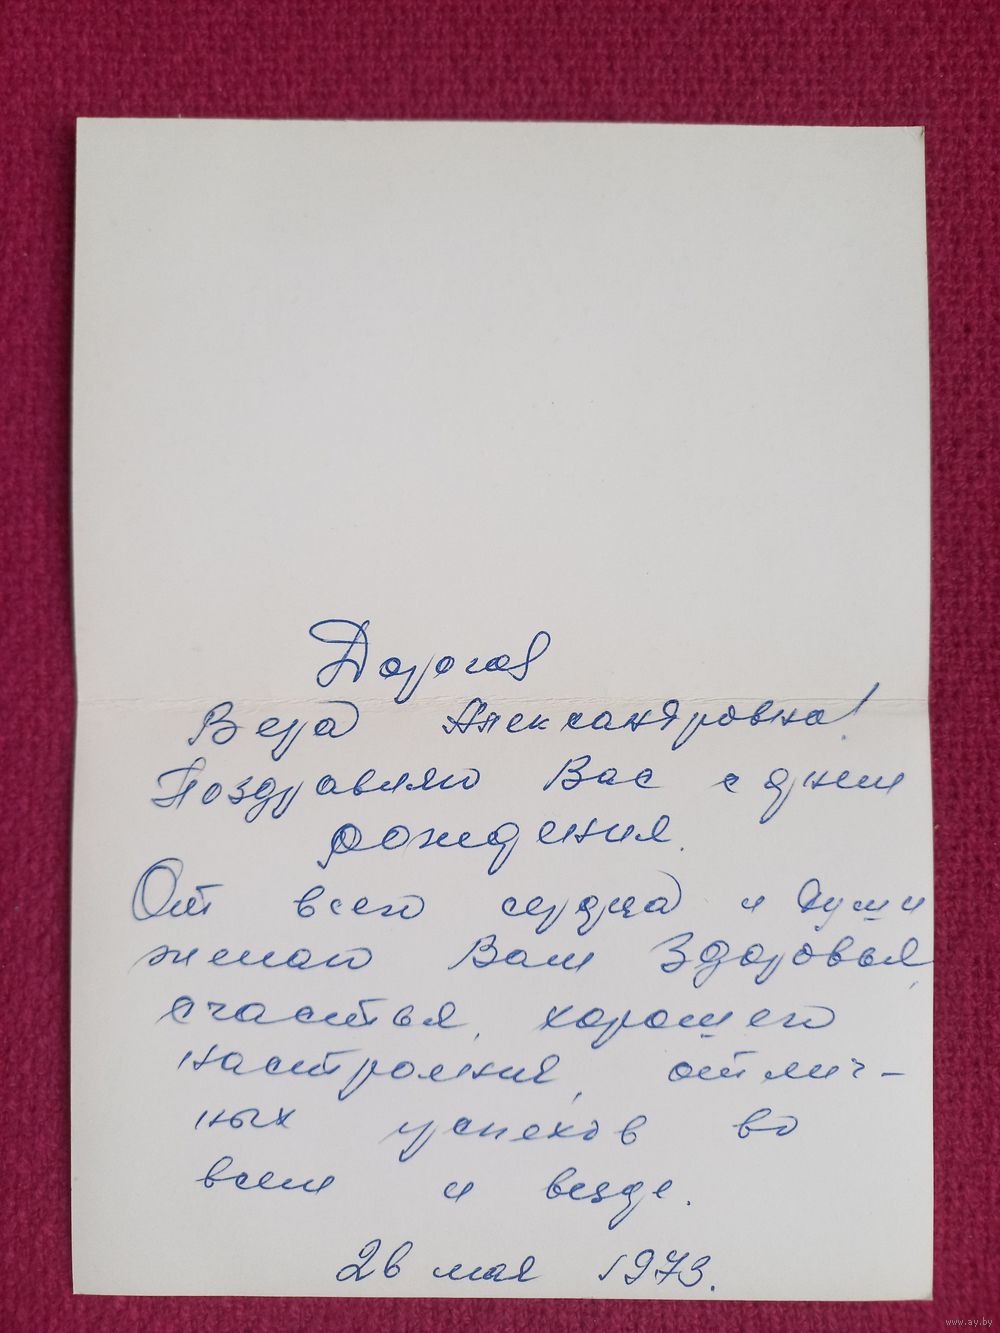 Дорогая
Вера Александровна!
Поздравляю Вас с днем
рождения.
От всего сердца и души
желаю Вам Здоровья,
счастья, хорошего
настроения, отлич-
ных успехов во
всем и везде.
26 мая 1973.
www.ay.by